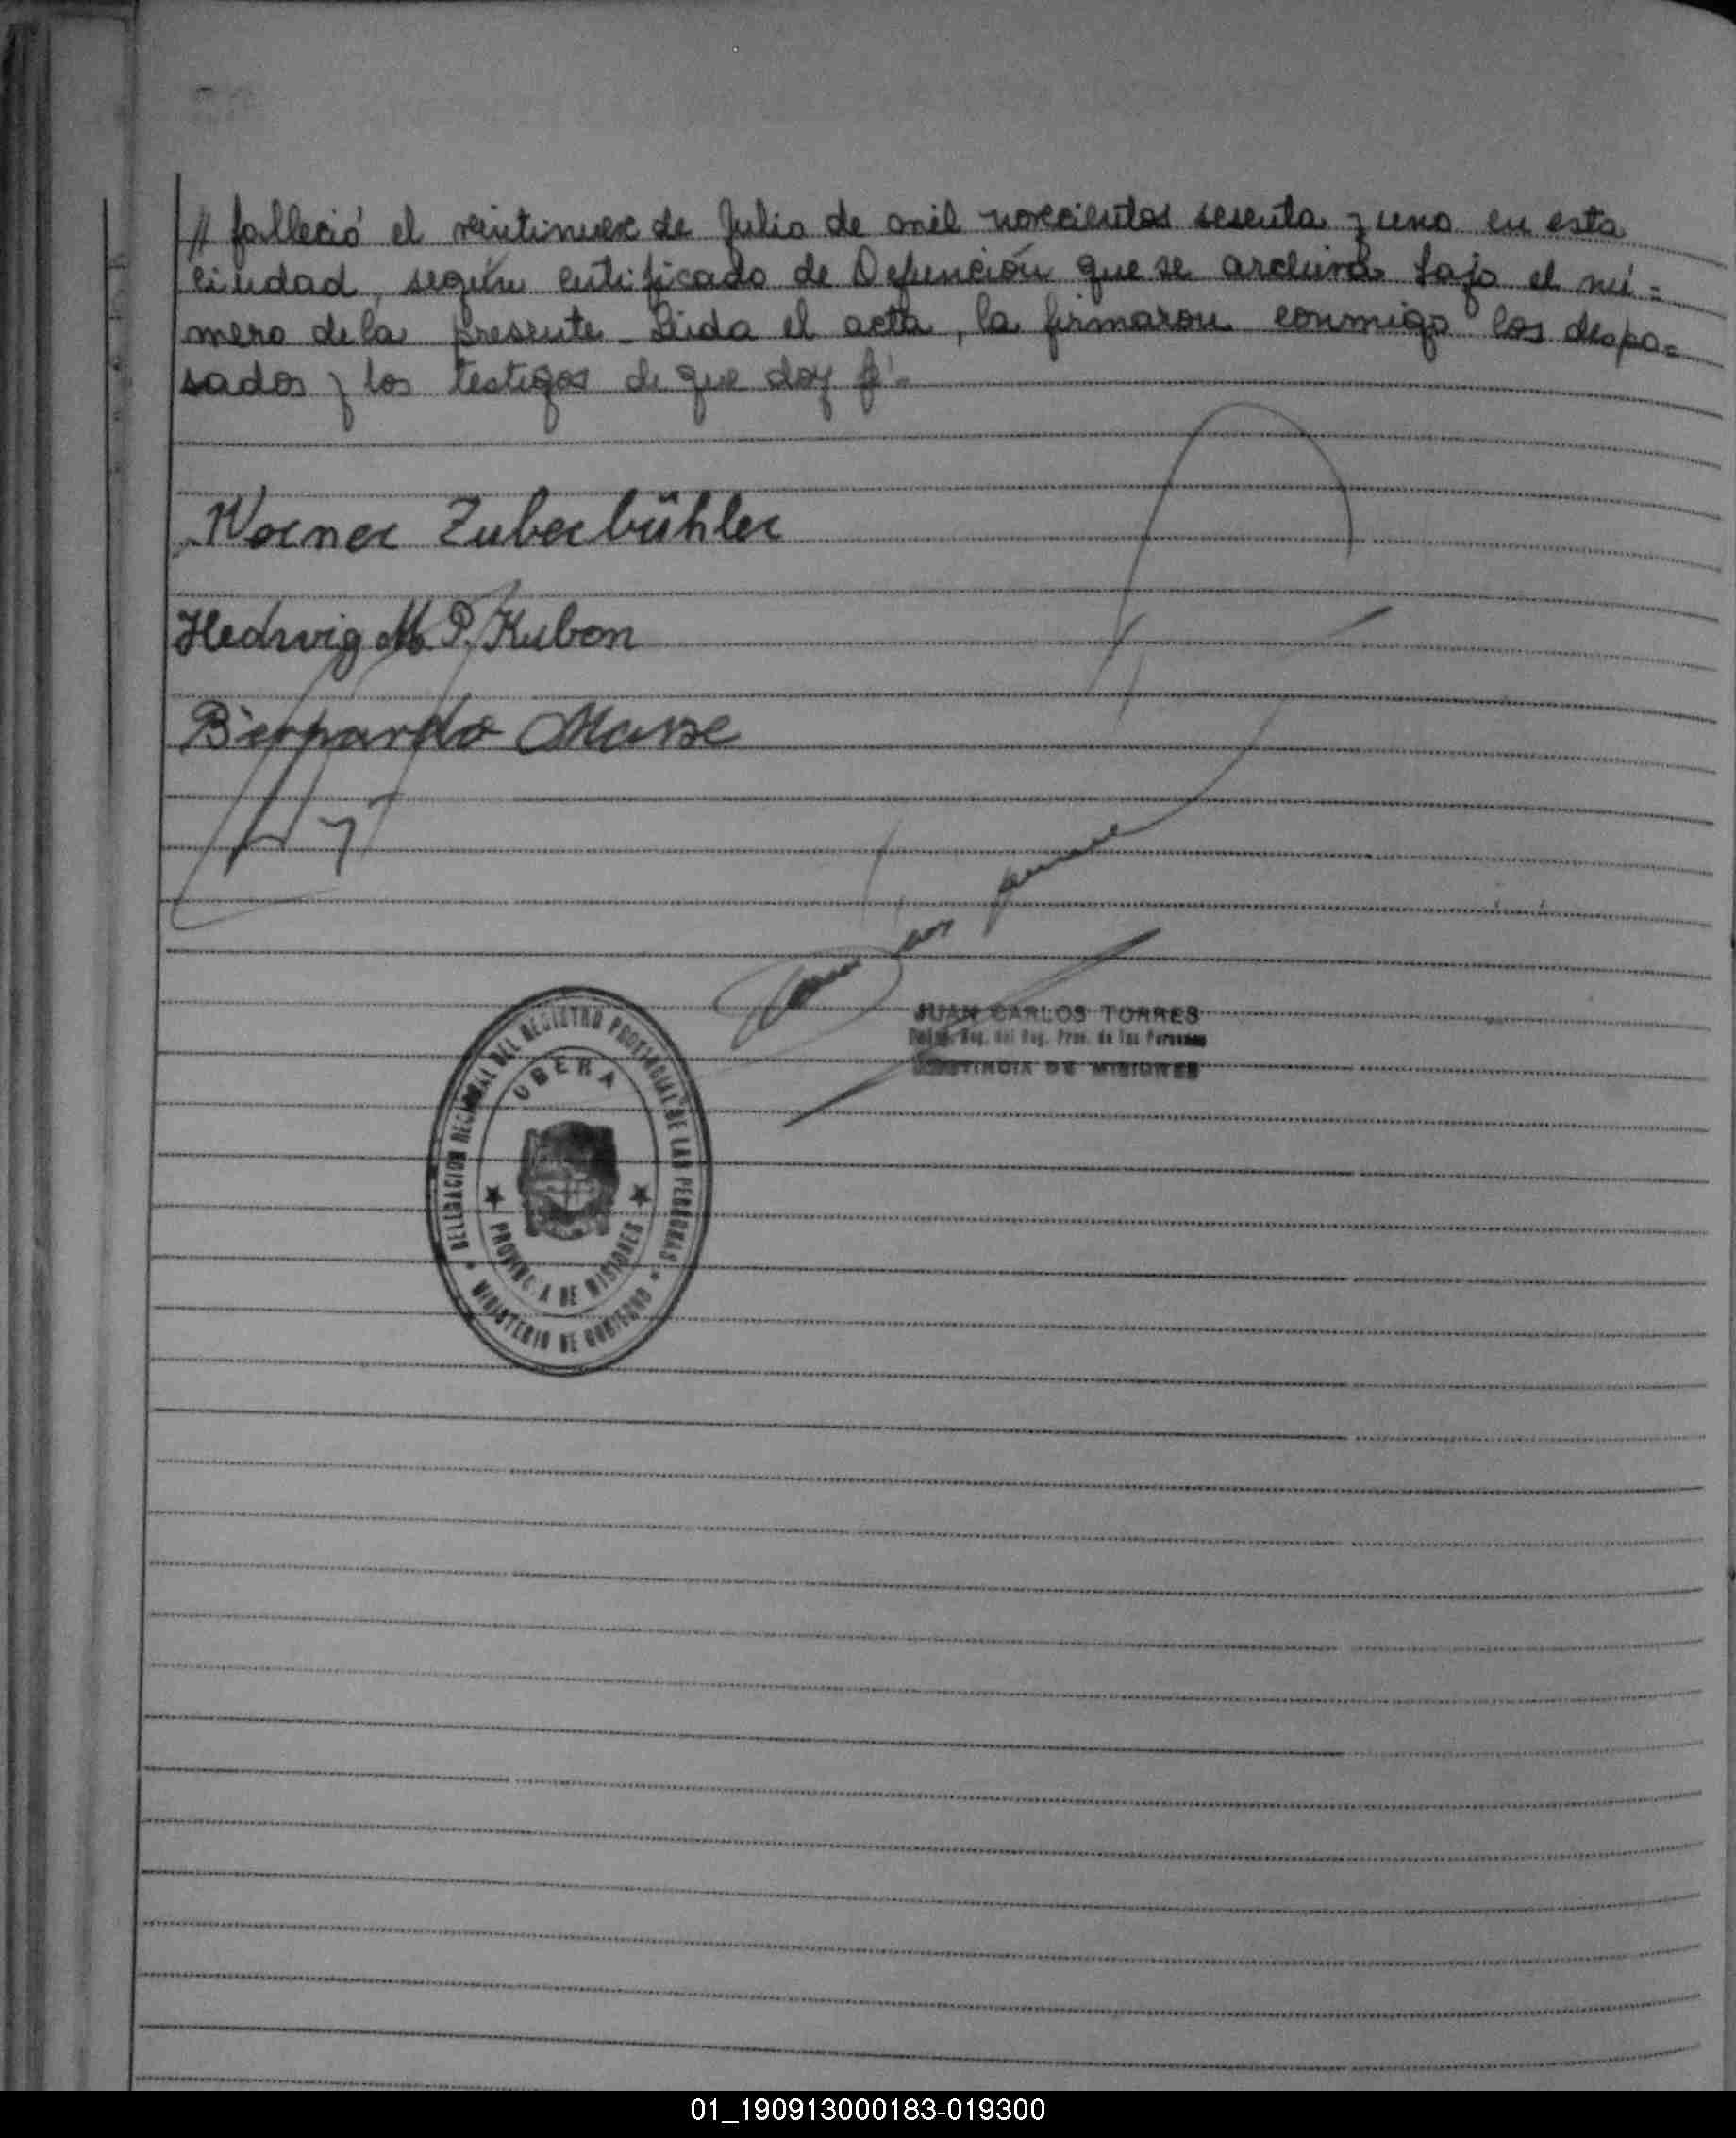 // falleció el veintinueve de Julio de mil novecientos sesenta y uno en esta
ciudad, según certificado de Defunción que se archiva bajo el nú=
mero de la presente. Leída el acta, la firmaron conmigo los despo=
sados y los testigos de que doy fé.-
Werner Zuberbühler
Hedwig M. P. Kubon
Bernardo Masse
JUAN CARLOS TORRES
Reg. del Reg. Prov. de las Personas
PROVINCIA DE MISIONES
DELEGACION REGIONAL DEL REGISTRO PROVINCIAL DE LAS PERSONAS
OBERA
PROVINCIA DE MISIONES
MINISTERIO DE GOBIERNO
01_190913000183-019300